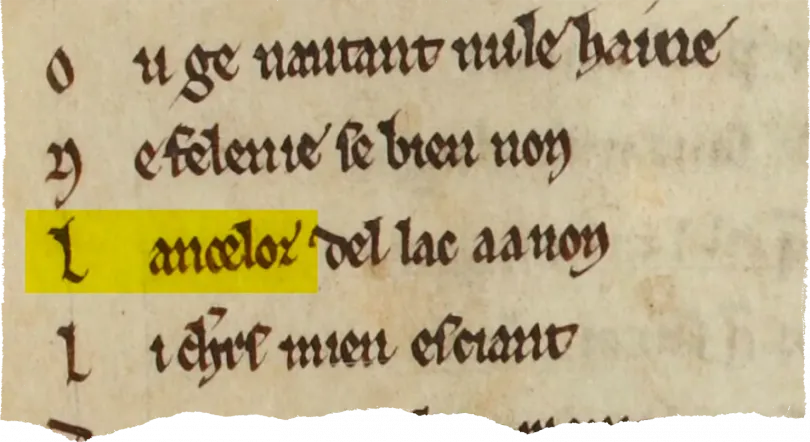 O u ge nautant nule haine
N e felenie se bien non
L ancelot del lac a a non
L i chrs mien esciant